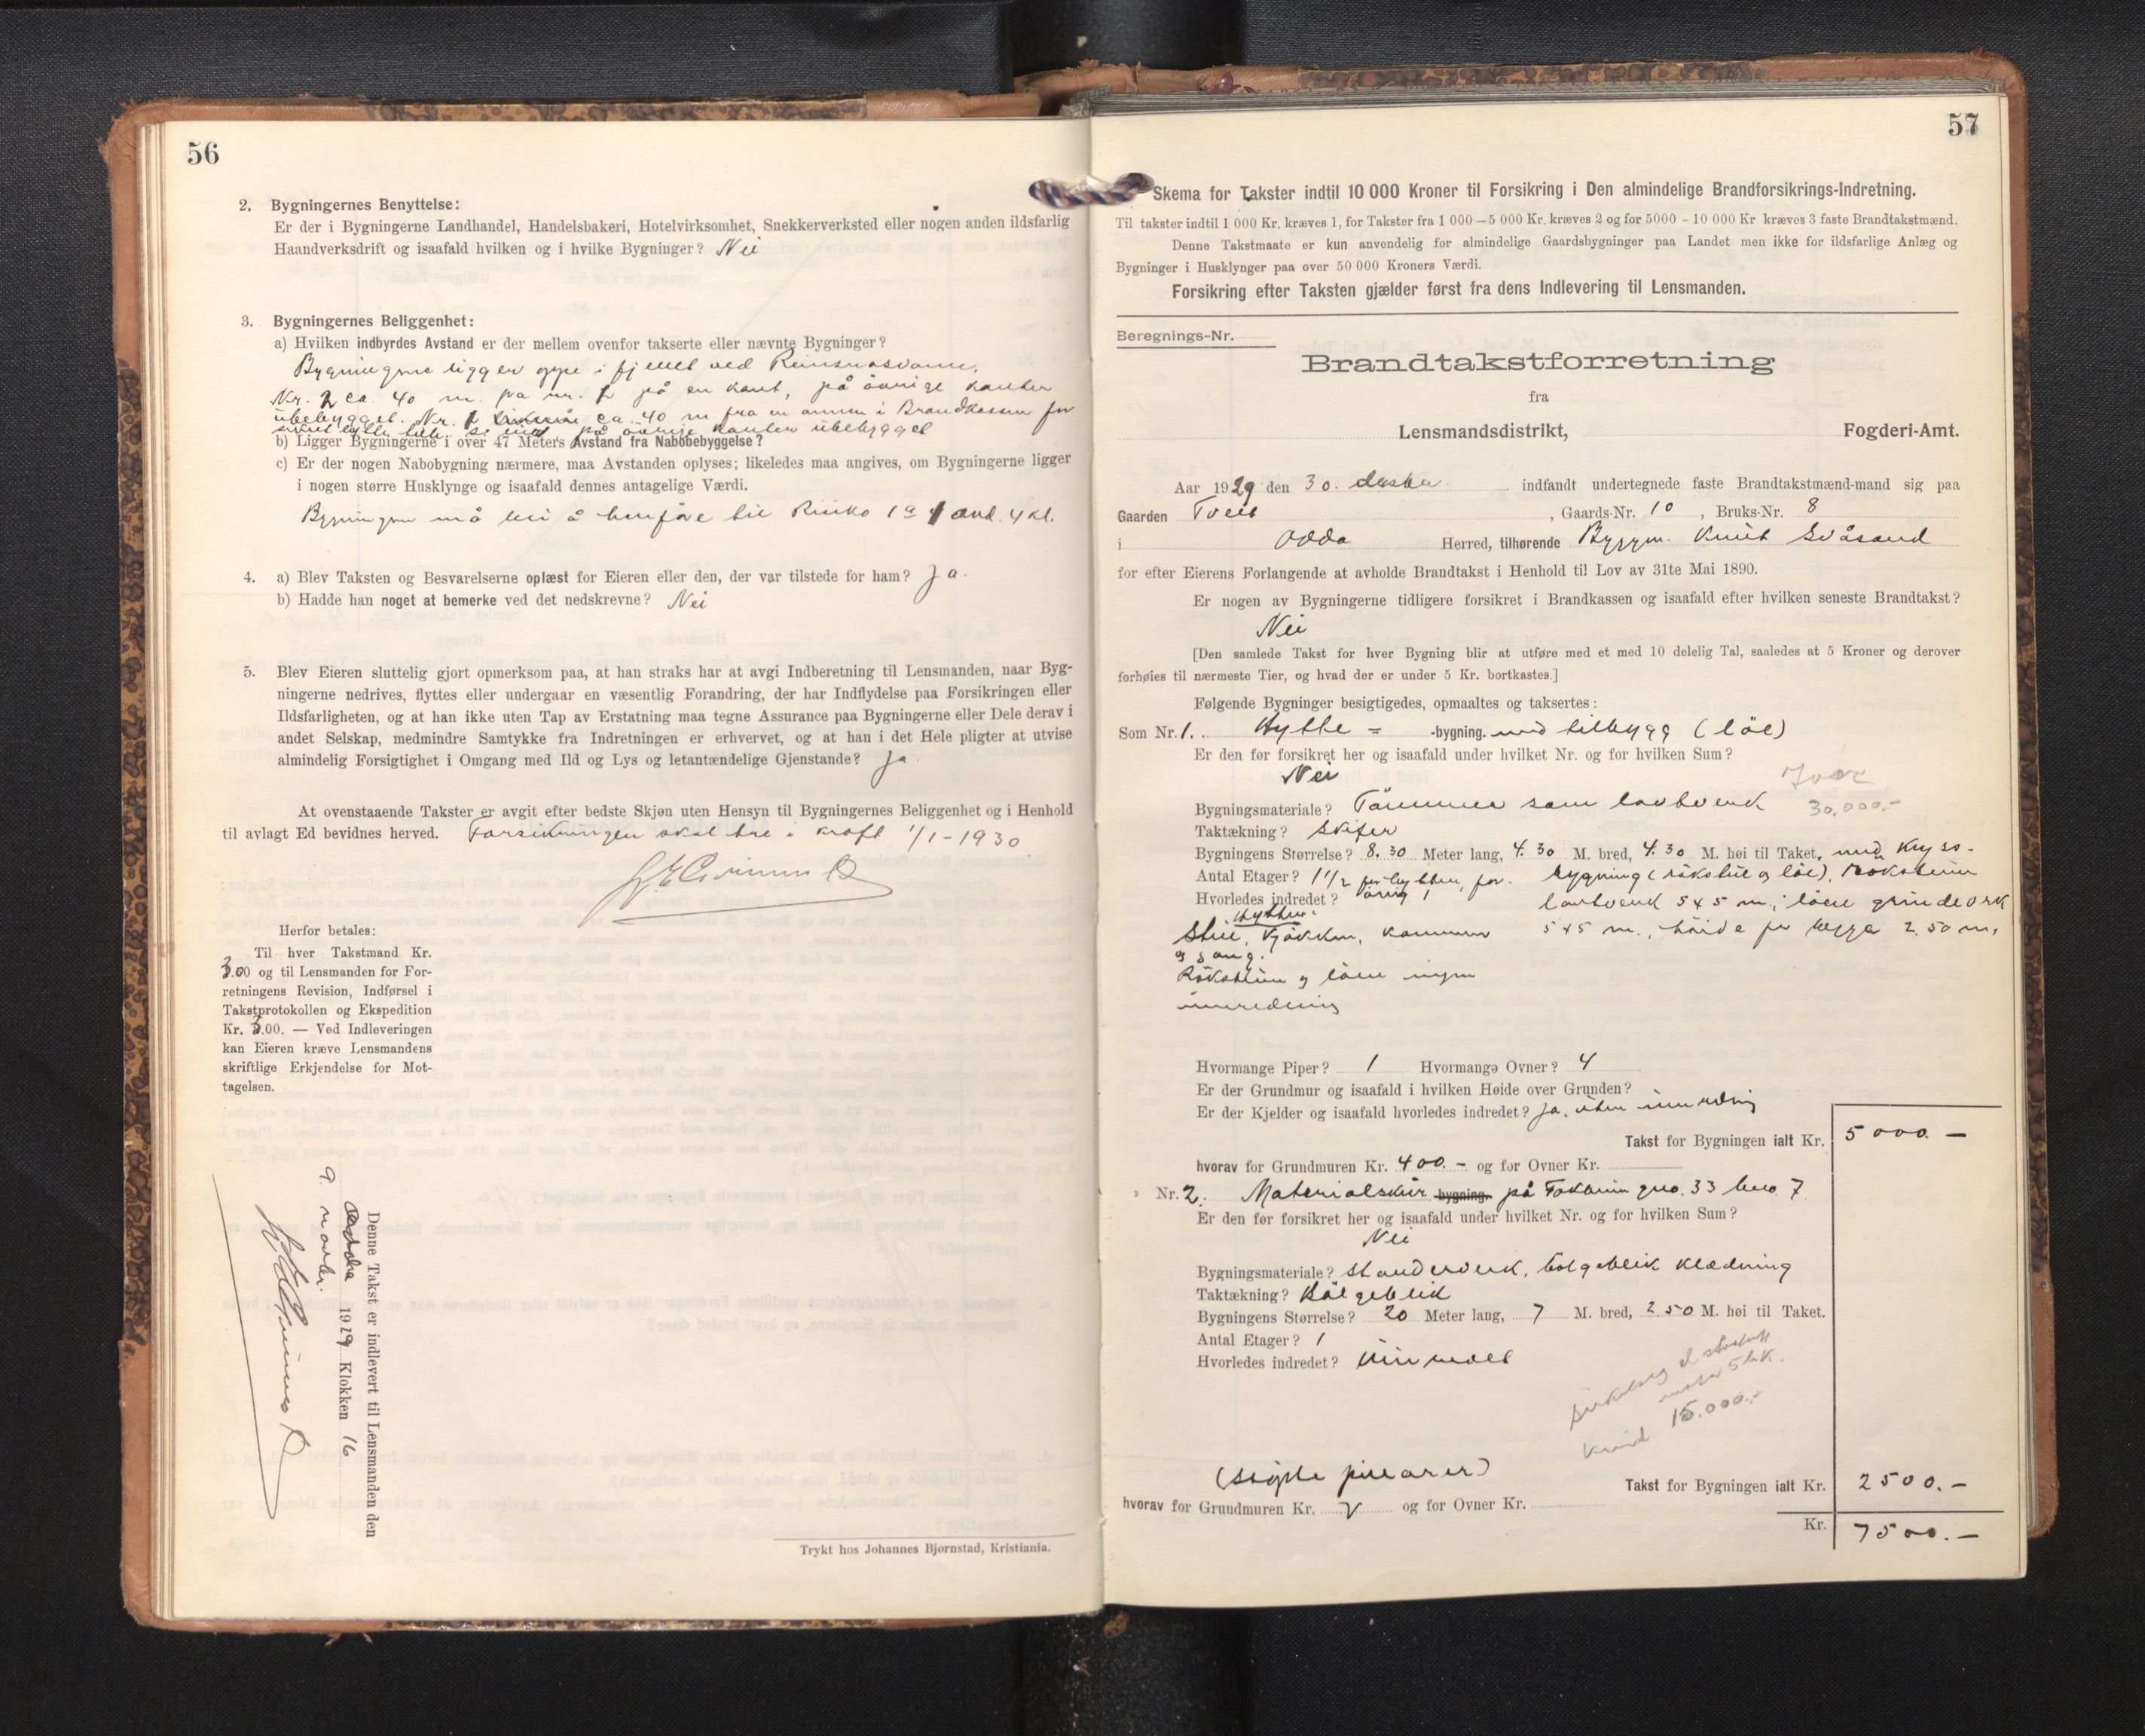 56
2. Bygningernes Benyttelse:
Er der i Bygningerne Landhandel, Handelsbakeri, Hotelvirksomhet, Snekkerverksted eller nogen anden ildsfarlig
Haandverksdrift og isaafald hvilken og i hvilke Bygninger? Nei
3. Bygningernes Beliggenhet:
a) Hvilken indbyrdes Avstand er der mellem ovenfor takserte eller nævnte Bygninger?
Bygningene ligger oppe i fjellet ved Reinsnosvann.
Nr. 2 ca. 40 m. fra nr. 1 på en kant, på øvrige kanter
ubebygget. Nr. 1 ca. 40 m fra en annen i Brandkassen for
sikret hytte på øvrige kanter ubebygget
b) Ligger Bygningerne i over 47 Meters Avstand fra Nabobebyggelse?
c) Er der nogen Nabobygning nærmere, maa Avstanden oplyses; likeledes maa angives, om Bygningerne ligger
i nogen større Husklynge og isaafald dennes antagelige Værdi.
Bygningen må bli å henføre til Risiko 1ª 4 kl.
4. a) Blev Taksten og Besvarelserne oplæst for Eieren eller den, der var tilstede for ham? Ja.
b) Hadde han noget at bemerke ved det nedskrevne? Nei
5. Blev Eieren sluttelig gjort opmerksom paa, at han straks har at avgi Indberetning til Lensmanden, naar Byg-
ningerne nedrives, flyttes eller undergaar en væsentlig Forandring, der har Indflydelse paa Forsikringen eller
Ildsfarligheten, og at han ikke uten Tap av Erstatning maa tegne Assurance paa Bygningerne eller Dele derav i
andet Selskap, medmindre Samtykke fra Indretningen er erhvervet, og at han i det Hele pligter at utvise
almindelig Forsigtighet i Omgang med Ild og Lys og letantændelige Gjenstande? Ja
At ovenstaaende Takster er avgit efter bedste Skjøn uten Hensyn til Bygningernes Beliggenhet og i Henhold
til avlagt Ed bevidnes herved. Forsikringen skal tre i kraft 1/1-1930
Herfor betales:
Til hver Takstmand Kr.
3.00 og til Lensmanden for For-
retningens Revision, Indførsel i
Takstprotokollen og Ekspedition
Kr. 3.00. — Ved Indleveringen
kan Eieren kræve Lensmandens
skriftlige Erkjendelse for Mot-
tagelsen.
Denne Takst er indlevert til Lensmanden den
9. novbr. 1929 Klokken 16
Trykt hos Johannes Bjørnstad, Kristiania.
57
Skema for Takster indtil 10 000 Kroner til Forsikring i Den almindelige Brandforsikrings-Indretning.
Til takster indtil 1 000 Kr. kræves 1, for Takster fra 1 000 — 5 000 Kr. kræves 2 og for 5000 – 10 000 Kr. kræves 3 faste Brandtakstmænd.
Denne Takstmaate er kun anvendelig for almindelige Gaardsbygninger paa Landet men ikke for ildsfarlige Anlæg og
Bygninger i Husklynger paa over 50 000 Kroners Værdi.
Forsikring efter Taksten gjælder først fra dens Indlevering til Lensmanden.
Beregnings-Nr.
Brandtakstforretning
fra
Lensmandsdistrikt, Fogderi-Amt.
Aar 1929 den 30. indfandt undertegnede faste Brandtakstmænd-mand sig paa
Gaarden Tveit, Gaards-Nr. 10, Bruks-Nr. 8
i Odda Herred, tilhørende Byggm. Knut Svåsand
for efter Eierens Forlangende at avholde Brandtakst i Henhold til Lov av 31te Mai 1890.
Er nogen av Bygningerne tidligere forsikret i Brandkassen og isaafald efter hvilken seneste Brandtakst?
Nei
[Den samlede Takst for hver Bygning blir at utføre med et med 10 delelig Tal, saaledes at 5 Kroner og derover
forhøies til nærmeste Tier, og hvad der er under 5 Kr. bortkastes.]
Følgende Bygninger besigtigedes, opmaaltes og taksertes:
Som Nr. 1. Hytte = -bygning. med tilbygg (löe)
Er den før forsikret her og isaafald under hvilket Nr. og for hvilken Sum?
Nei
Bygningsmateriale? Tömmer som lavtverk 30.000.-
Taktækning? Skifer
Bygningens Størrelse? 8.30 Meter lang, 4.30 M. bred, 4.30 M. høi til Taket, med kryss-
Antal Etager? 1 1/2 for hytten, for bygning (røkstue og löe), Rokstuen
øvrig 1
Hvorledes indredet? lavtverk 5 x 5 m., löen grindverk
Hytten:
Stue, Kjøkken, kammer 5 x 5 m., høide for begge 2.50 m.
og gang.
Röksteen og löen ingen
innredning
Hvormange Piper? 1 Hvormange Ovner? 4
Er der Grundmur og isaafald i hvilken Høide over Grunden?
Er der Kjelder og isaafald hvorledes indredet? Ja, uten innredning
Takst for Bygningen ialt Kr. 5000.—
hvorav for Grundmuren Kr. 400.- og for Ovner Kr.
Nr. 2. Materialskur bygning. på Tokheim gno. 33 bno. 7
Er den før forsikret her og isaafald under hvilket Nr. og for hvilken Sum?
Nei
Bygningsmateriale? Standerverk, bølgeblik klædning
Taktækning? Bølgeblik
Bygningens Størrelse? 20 Meter lang, 7 M. bred, 2.50 M. høi til Taket.
Antal Etager? 1
Hvorledes indredet? Uinnredet
15.000.-
(Støpte pillarer)
Takst for Bygningen ialt Kr. 2500.—
hvorav for Grundmuren Kr. og for Ovner Kr.
Kr. 7500.—